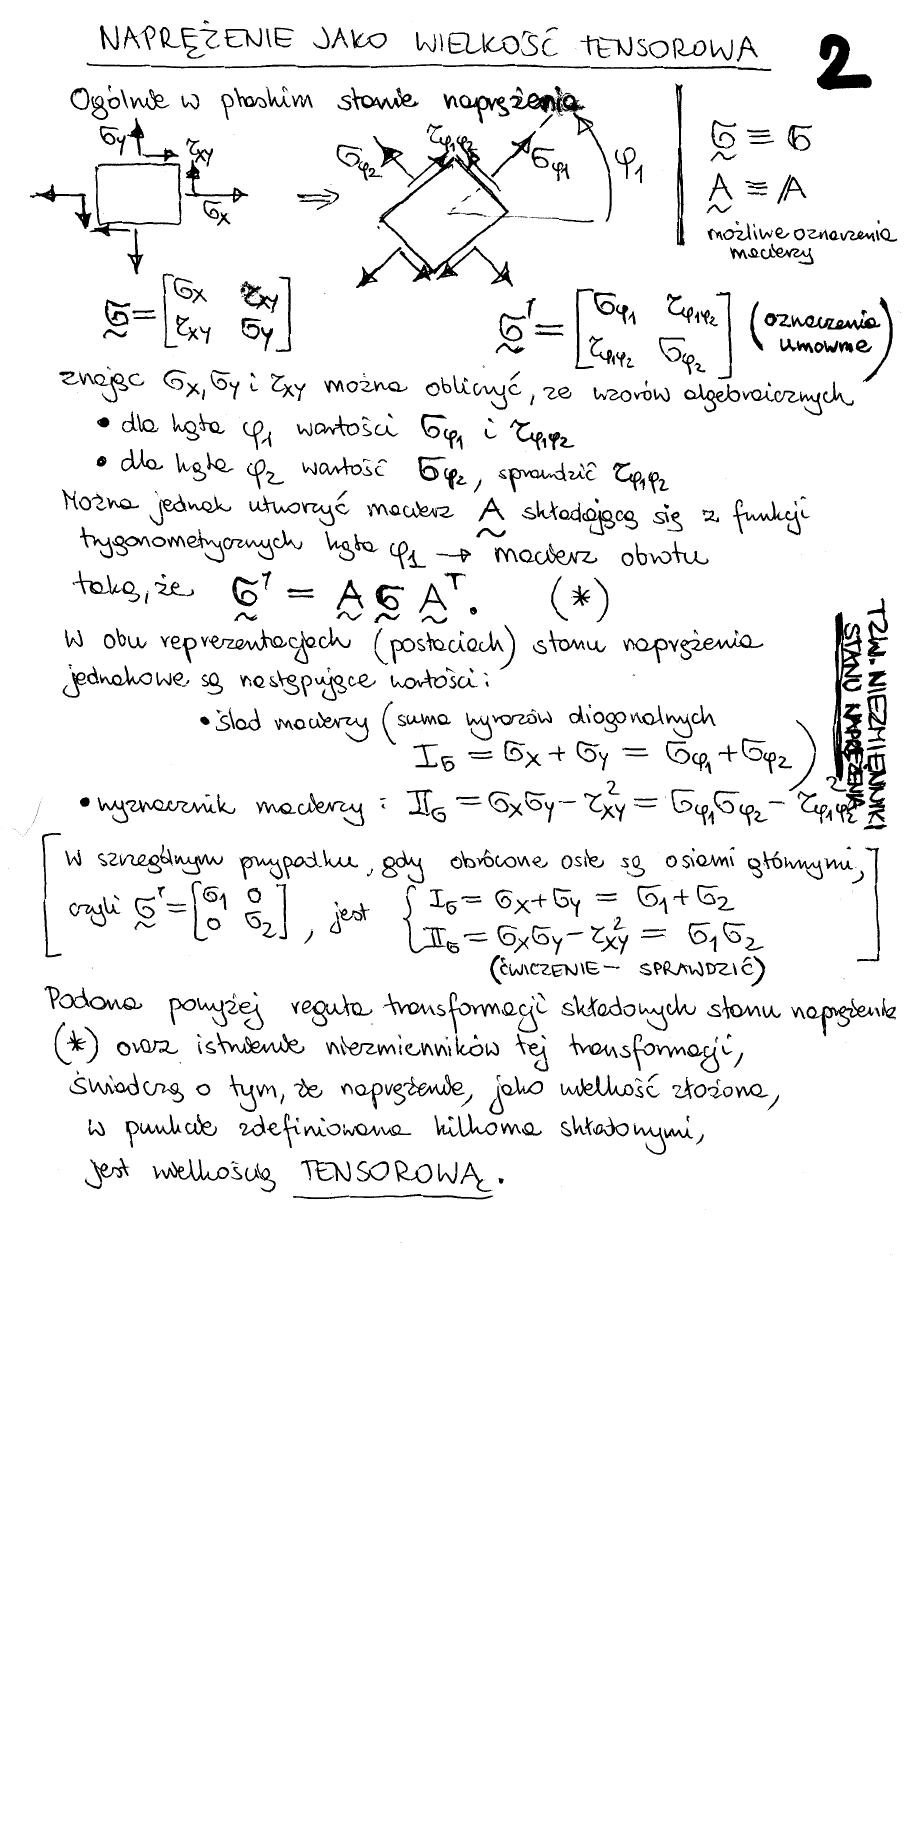 NAPRĘŻENIE JAKO WIELKOŚĆ TENSOROWA
2
Ogólnie w płaskim stanie naprężenia
σy τxy σx ⇒ σφ2 τφ1φ2 σφ1 φ1
σ ≡ σ
A ≡ A
możliwe oznaczenia
macierzy
σ = [σx τxy
τxy σy]
σ' = [σφ1 τφ1φ2
τφ1φ2 σφ2]
(oznaczenia
umowne)
znając σx, σy i τxy można obliczyć, ze wzorów algebraicznych
• dla kąta φ1 wartości σφ1 i τφ1φ2
• dla kąta φ2 wartość σφ2, sprawdzić τφ1φ2
Można jednak utworzyć macierz A składającą się z funkcji
trygonometrycznych kąta φ1 → macierz obrotu
taką, że σ' = A σ Aᵀ. (*)
W obu reprezentacjach (postaciach) stanu naprężenia
jednakowe są następujące wartości:
• ślad macierzy (suma wyrazów diagonalnych
Iσ = σx + σy = σφ1 + σφ2)
• wyznacznik macierzy : IIσ = σxσy − τxy² = σφ1σφ2 − τφ1φ2²
TZW. NIEZMIENNIKI
STANU NAPRĘŻENIA
[W szczególnym przypadku, gdy obrócone osie są osiami głównymi,
czyli σ' = [σ1 0
0 σ2], jest { Iσ = σx + σy = σ1 + σ2
IIσ = σxσy − τxy² = σ1σ2]
(ĆWICZENIE − SPRAWDZIĆ)
Podana powyżej reguła transformacji składowych stanu naprężenia
(*) oraz istnienie niezmienników tej transformacji,
świadczą o tym, że naprężenie, jako wielkość złożona,
w punkcie zdefiniowana kilkoma składowymi,
jest wielkością TENSOROWĄ.